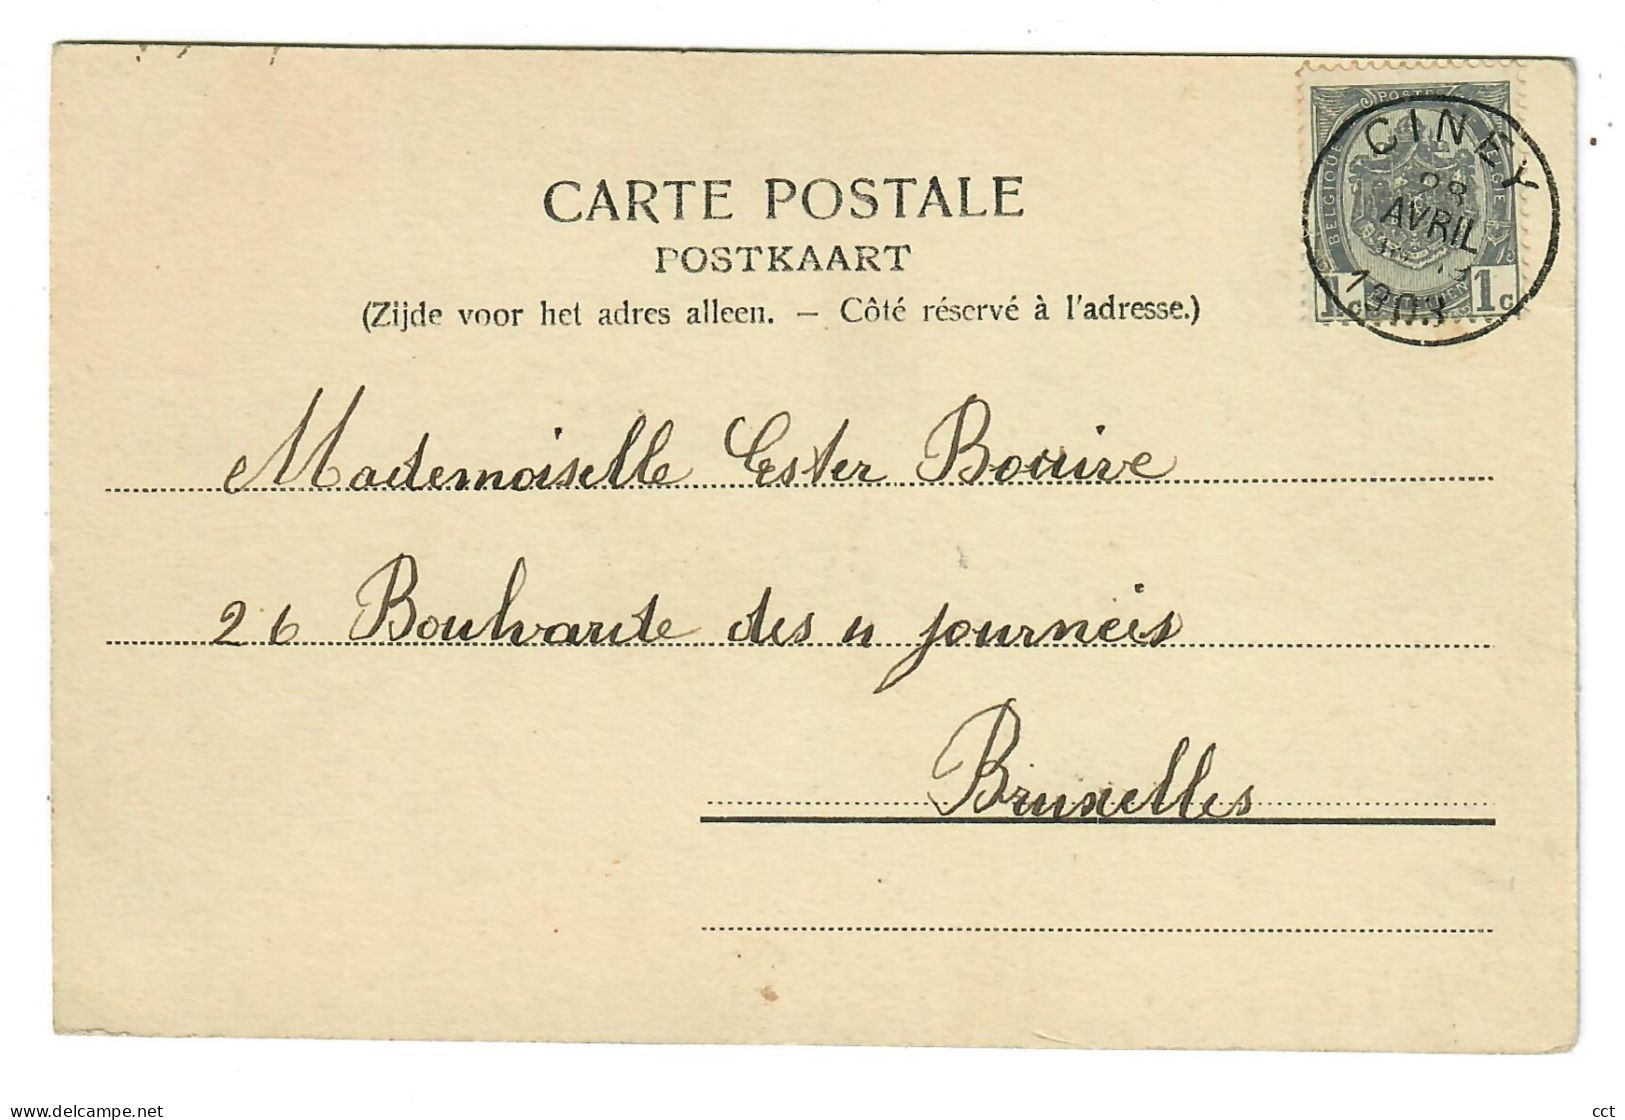 CARTE POSTALE
POSTKAART
(Zijde voor het adres alleen. — Côté réservé à l'adresse.)
POSTES
BELGIQUE
1c 1c
CINEY
AVRIL
1903
Mademoiselle Ester Bouire
26 Boulvarte des 4 journeis
Bruxelles
delcampe.net
cct